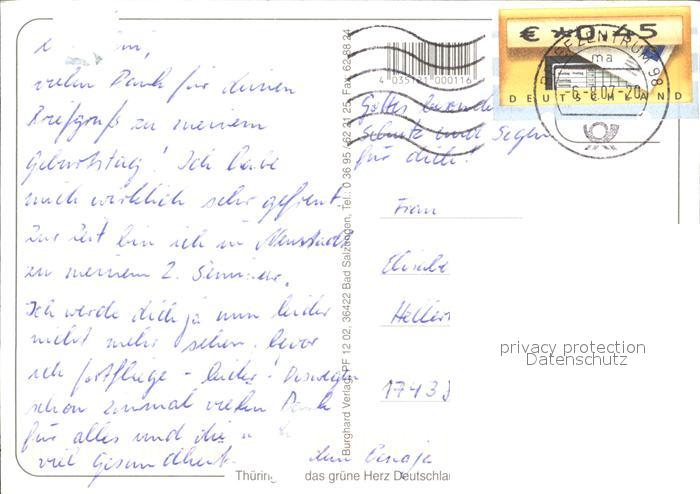 vielen Dank für deinen
Briefgruß zu meinem
Geburtstag! Ich habe
mich wirklich sehr gefreut.
Zur Zeit bin ich in Neustadt
zu meinem 2. Seminar.
Ich werde dich ja nun leider
nicht mehr sehen, bevor
ich fortfliege - leider! Deswegen
schon einmal vielen Dank
für alles und die
viel Gesundheit.
Gottes
Schutz und Segen
für dich!
Burghard Verlag, PF 12 02, 36422 Bad Salzungen, Tel. 0 36 95 / 62 21 25, Fax: 62 88 24
4 035121 000116
€ *0,45
DEUTSCHLAND
BRIEFZENTRUM 98
ma
-6.-8.07-20
Frau
Heller
privacy protection
Datenschutz
Thüring das grüne Herz Deutschla